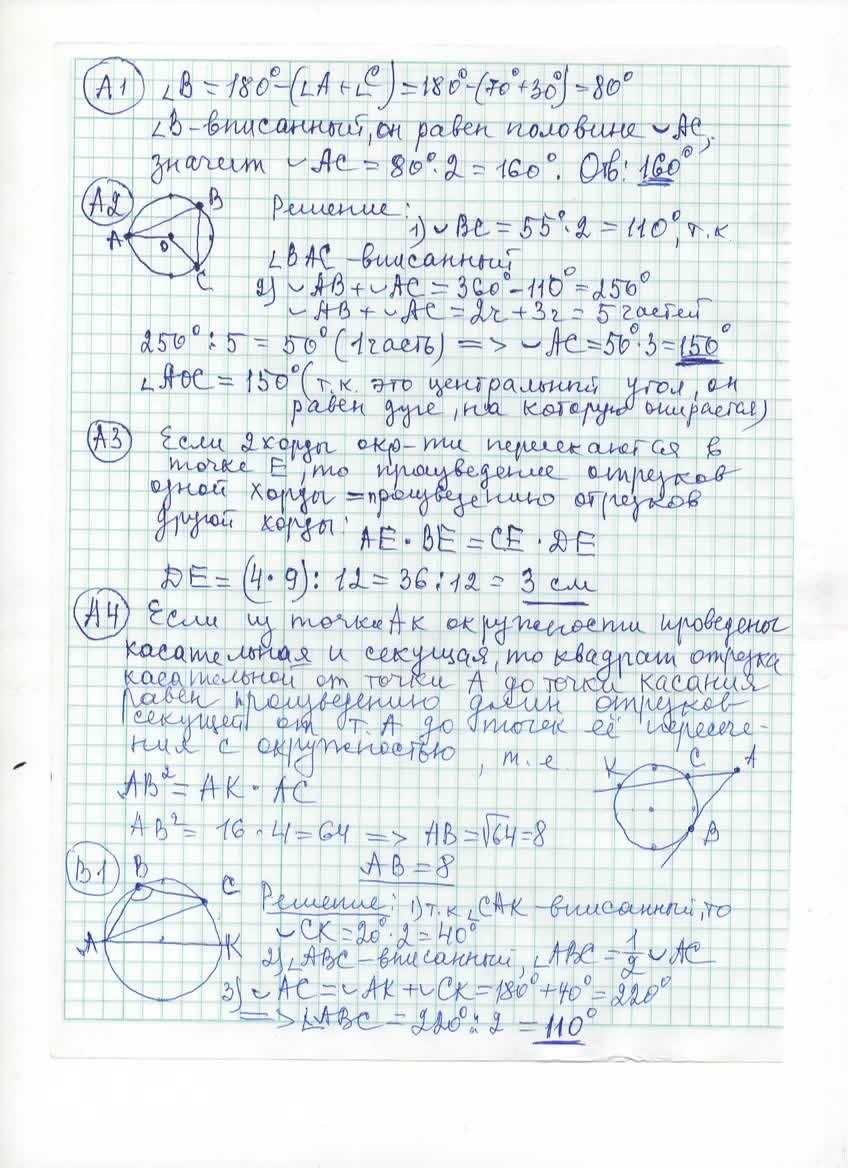 А1 ∠B = 180° - (∠A + ∠C) = 180° - (70° + 30°) = 80°
∠B - вписанный, он равен половине ◡AC,
значит ◡AC = 80° · 2 = 160°. Отв: 160°
А2 Решение:
B
A
O
C
1) ◡BC = 55° · 2 = 110°, т.к.
∠BAC - вписанный
2) ◡AB + ◡AC = 360° - 110° = 250°
◡AB + ◡AC = 2ч + 3ч = 5 частей
250° : 5 = 50° (1 часть) => ◡AC = 50° · 3 = 150°
∠AOC = 150° (т.к. это центральный угол, он
равен дуге, на которую опирается)
А3 Если 2 хорды окр-ти пересекаются в
точке E, то произведение отрезков
одной хорды = произведению отрезков
другой хорды:
AE · BE = CE · DE
DE = (4 · 9) : 12 = 36 : 12 = 3 см
А4 Если из точки A к окружности проведены
касательная и секущая, то квадрат отрезка
касательной от точки A до точки касания
равен произведению длин отрезков
секущей от т. A до точек её пересече-
ния с окружностью, т.е.
K C A
B
AB² = AK · AC
AB² = 16 · 4 = 64 => AB = √64 = 8
AB = 8
В1
B
C
A
K
Решение: 1) т.к. ∠CAK - вписанный, то
◡CK = 20° · 2 = 40°
2) ∠ABC - вписанный, ∠ABC = 1/2 ◡AC
3) ◡AC = ◡AK + ◡CK = 180° + 40° = 220°
=> ∠ABC = 220° : 2 = 110°